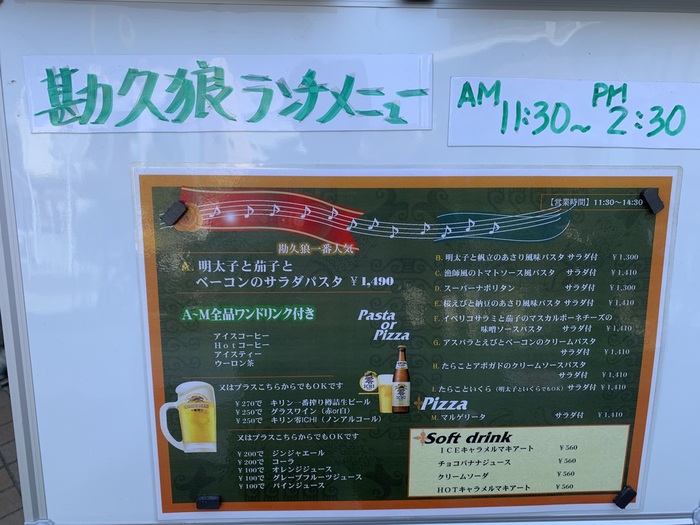 勘久狼ランチメニュー
AM 11:30~ PM 2:30
【営業時間】11:30～14:30
勘久狼一番人気
A. 明太子と茄子と
ベーコンのサラダパスタ ￥1,490
A~M全品ワンドリンク付き
アイスコーヒー
Hotコーヒー
アイスティー
ウーロン茶
Pasta
or
Pizza
又はプラスこちらからでもOKです
￥270で キリン一番搾り樽詰生ビール
￥250で グラスワイン（赤or白）
￥250で キリン零ICHI（ノンアルコール）
又はプラスこちらからでもOKです
￥200で ジンジャエール
￥200で コーラ
￥100で オレンジジュース
￥100で グレープフルーツジュース
￥100で パインジュース
B. 明太子と帆立のあさり風味パスタ サラダ付 ￥1,300
C. 漁師風のトマトソース風パスタ サラダ付 ￥1,410
D. スーパーナポリタン サラダ付 ￥1,300
E. 桜えびと納豆のあさり風味パスタ サラダ付 ￥1,410
F. イベリコサラミと茄子のマスカルポーネチーズの
味噌ソースパスタ サラダ付 ￥1,410
G. アスパラとえびとベーコンのクリームパスタ
サラダ付 ￥1,410
H. たらことアボガドのクリームソースパスタ
サラダ付 ￥1,410
I. たらこといくら（明太子といくらでもOK）サラダ付 ￥1,410
Pizza
M. マルゲリータ サラダ付 ￥1,410
Soft drink
ICEキャラメルマキアート ￥560
チョコバナナジュース ￥560
クリームソーダ ￥560
HOTキャラメルマキアート ￥560
零
ICHI